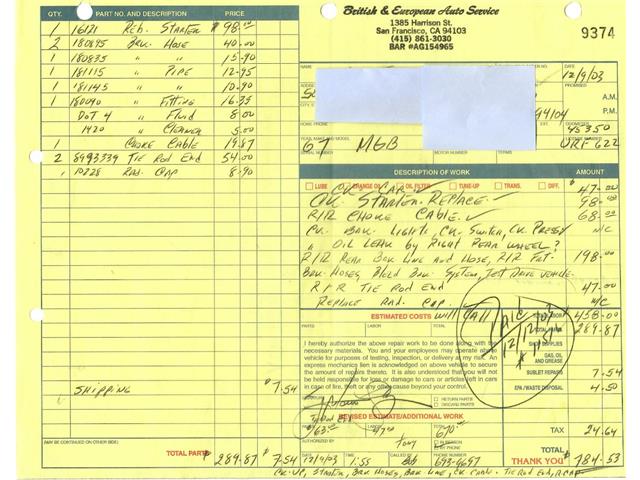 QTY. PART NO. AND DESCRIPTION PRICE
1 16121 Reb. Starter $98.00
2 180695 Brk. Hose 40.00
1 180835 " " 15.90
1 181115 " Pipe 12.95
1 181145 " " 10.90
1 180090 " Fitting 16.35
Dot 4 " Fluid 8.00
1420 " Cleaner 5.00
1 Choke Cable 19.87
2 8993339 Tie Rod End 54.00
1 10228 Rad. Cap 8.90
Shipping 7.54
(MAY BE CONTINUED ON OTHER SIDE)
TOTAL PARTS 289.87 7.54
British & European Auto Service
1385 Harrison St.
San Francisco, CA 94103
(415) 861-3030
BAR #AG154965
9374
DATE
12/9/03
PROMISED
A.M.
P.M.
94104
HOME PHONE
EXT.
45350
YEAR, MAKE AND MODEL
67 MGB
MOTOR NUMBER
URF 622
DESCRIPTION OF WORK AMOUNT
LUBE CHANGE OIL OIL FILTER TUNE-UP TRANS. DIFF.
Ck. Car. $47.00
Ck. Starter. Replace. 98.00
R/R Choke Cable. 68.00
Ck. Brk. Lights, Ck. Switch, Ck. Press? N/C
" Oil Leak by Right Rear Wheel?
R/R Rear Brk Line and Hose, R/R Frt. 198.00
Brk. Hoses, Bleed Brk. System, Test Drive Vehicle.
R/R Tie Rod End 47.00
Replace Rad. Cap. N/C
ESTIMATED COSTS Will Call 458.00
PARTS LABOR TOTAL PARTS 289.87
Paid 12/12/03
I hereby authorize the above repair work to be done along with the
necessary materials. You and your employees may operate above
vehicle for purposes of testing, inspection, or delivery at my risk. An
express mechanics lien is acknowledged on above vehicle to secure
the amount of repairs thereto. It is also understood that you will not
be held responsible for loss or damage to cars or articles left in cars
in case of fire, theft or any other cause beyond your control.
SHOP SUPPLIES
GAS, OIL AND GREASE
SUBLET REPAIRS 7.54
EPA / WASTE DISPOSAL 4.50
SIGNATURE
RETURN PARTS
DISCARD PARTS
REVISED ESTIMATE/ADDITIONAL WORK
PARTS LABOR TOTAL
47.00
AUTHORIZED BY Tony IN PERSON
TAX 24.64
DATE 12/9/03 TIME 1:55 CALLED Bob 693-6697
TOTAL
THANK YOU $784.53
Ck-up, Starter, Brk Hoses, Brk Line, Ck Cable. Tie Rod End, R.Cap